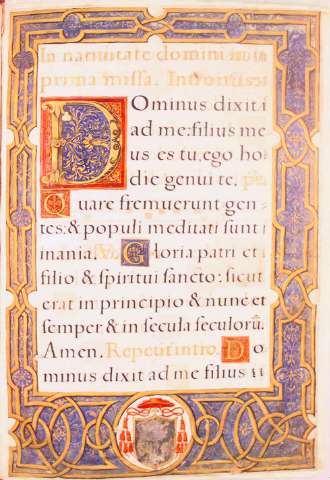 In natiuitate domini
prima missa. Introitus
Dominus dixit
ad me: filius me
us es tu, ego ho
die genui te. ps
Quare fremuerunt gen
tes: & populi meditati sunt
inania. Gloria patri et
filio & spiritui sancto: sicut
erat in principio & nunc et
semper & in secula seculorū.
Amen. Repetit intro. Do
minus dixit ad me filius